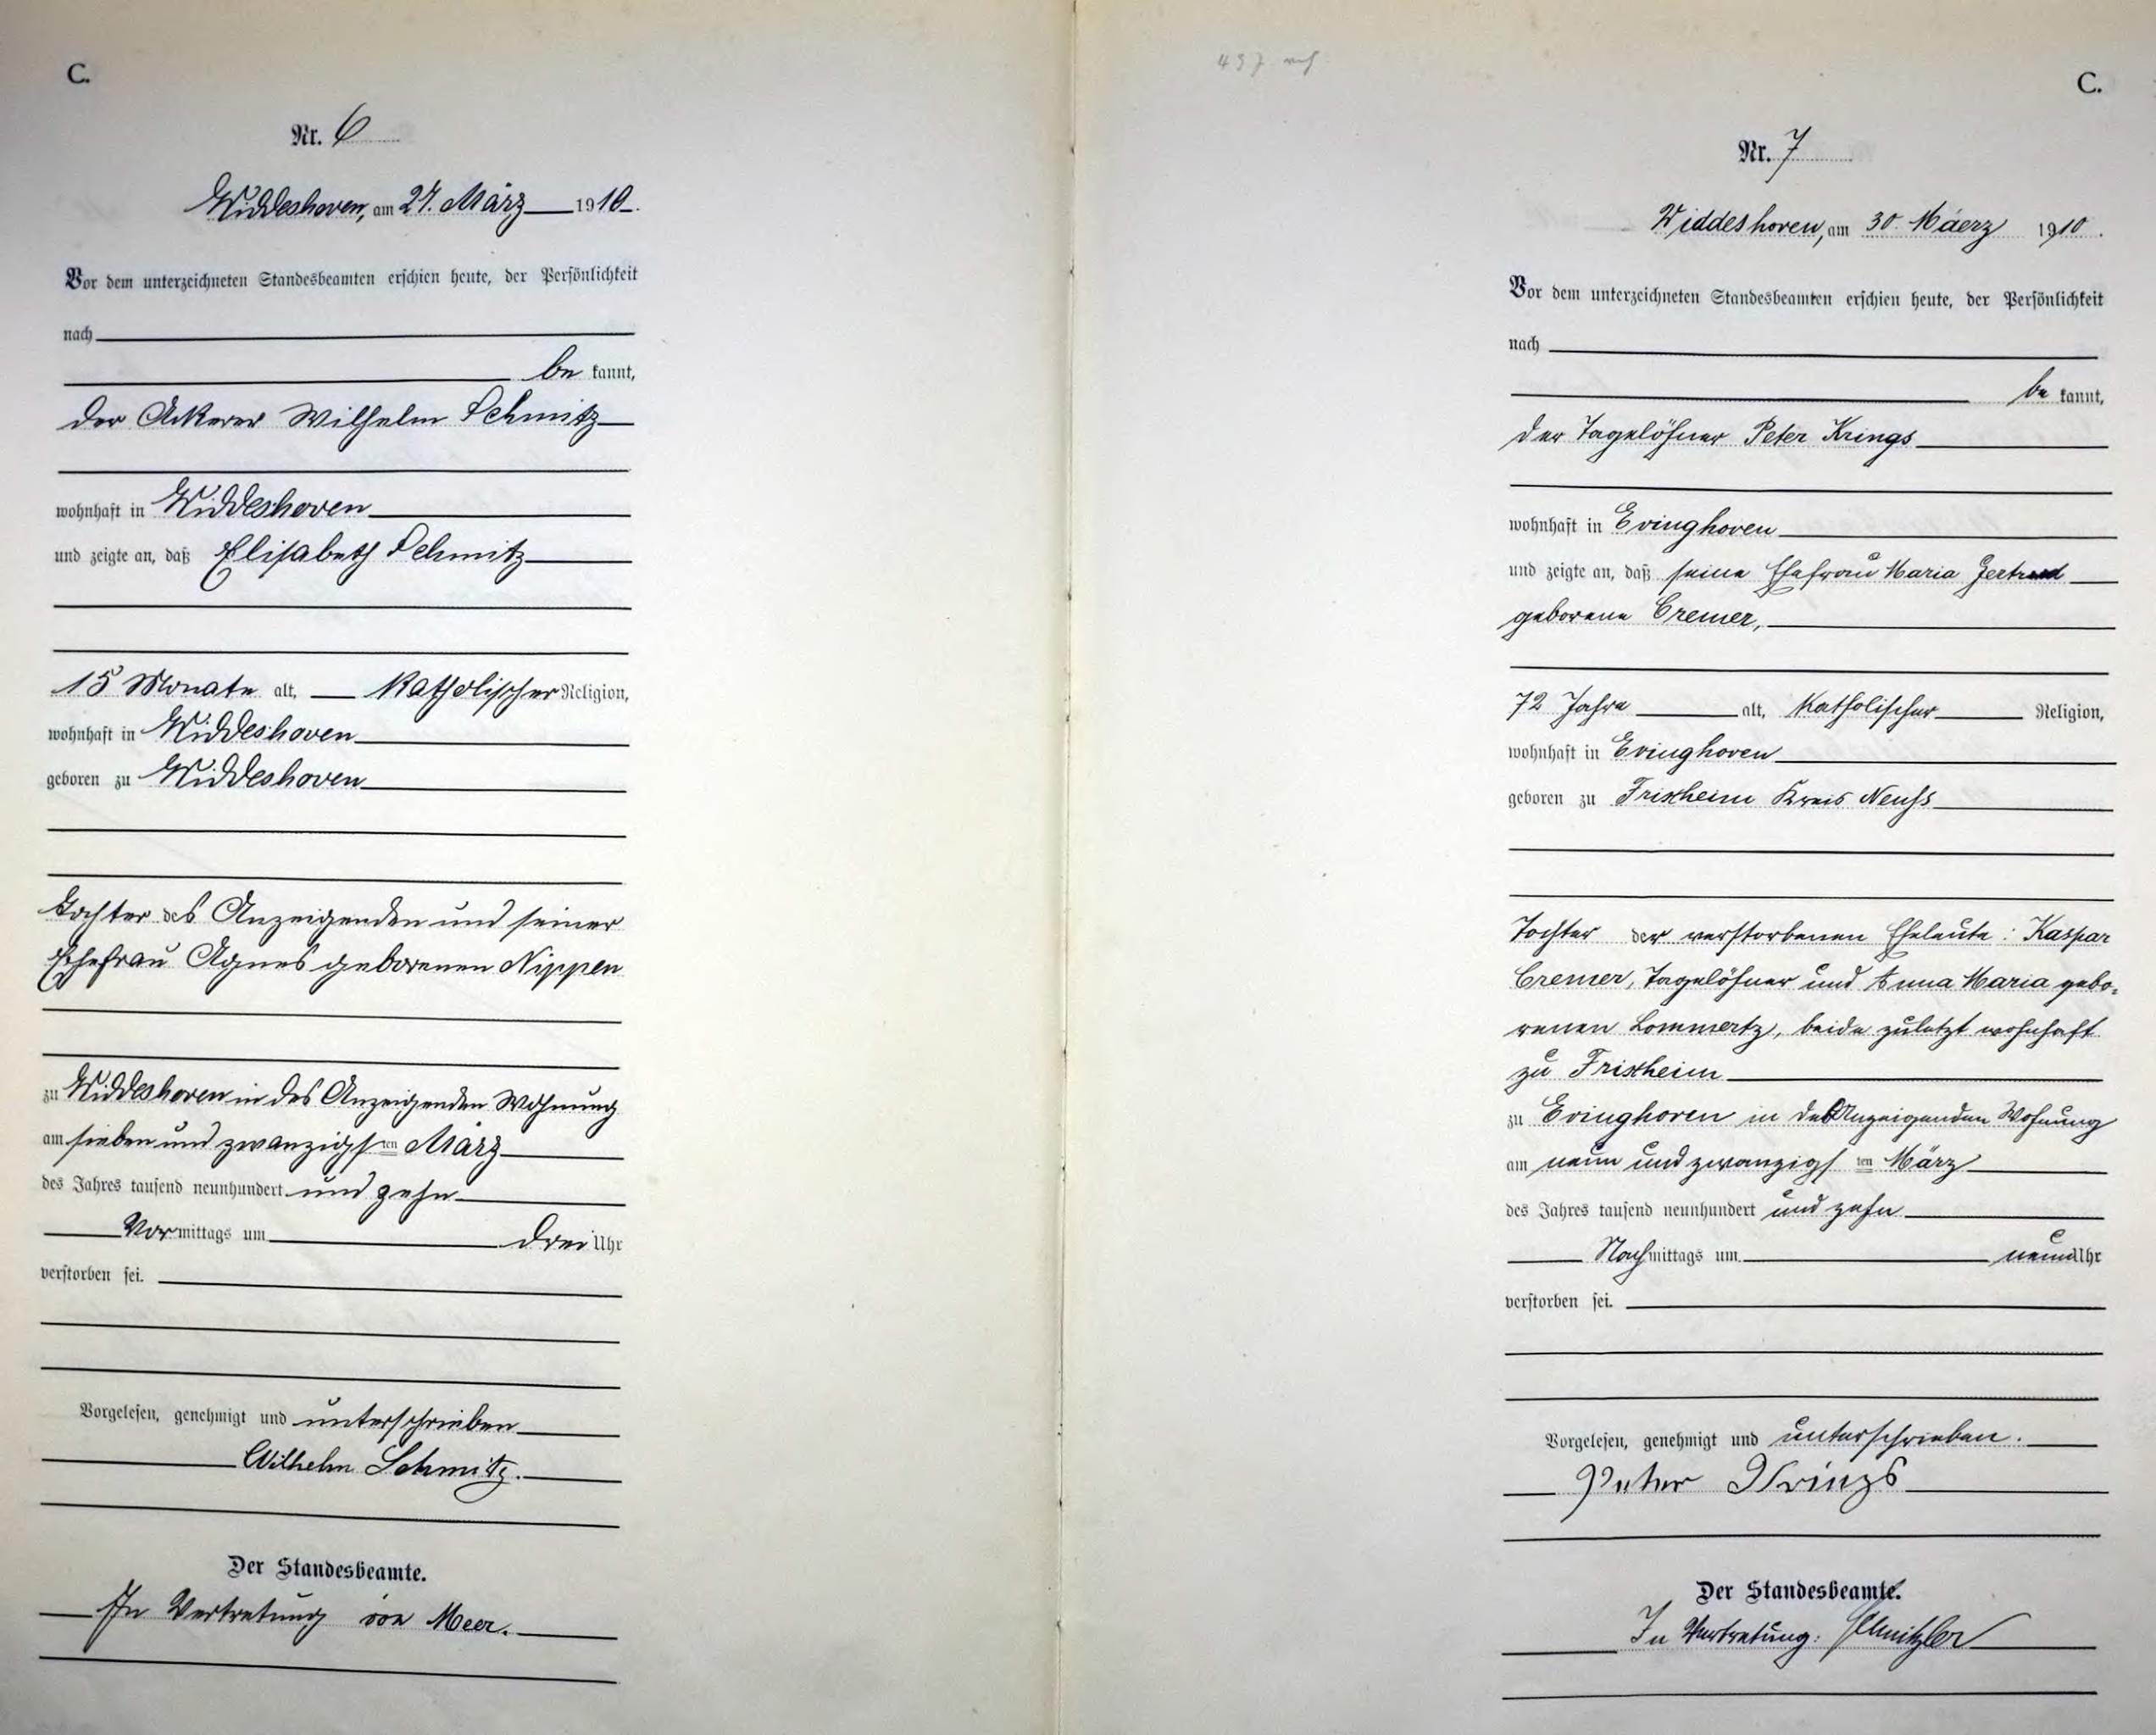 C.
Nr. 6
Widdeshoven, am 27. März 1910.
Vor dem unterzeichneten Standesbeamten erschien heute, der Persönlichkeit
nach
be kannt,
der Ackerer Wilhelm Schmitz
wohnhaft in Widdeshoven
und zeigte an, daß Elisabeth Schmitz
15 Monate alt, katholischer Religion,
wohnhaft in Widdeshoven
geboren zu Widdeshoven
Tochter des Anzeigenden und seiner
Ehefrau Agnes geborenen Nippen
zu Widdeshoven in des Anzeigenden Wohnung
am sieben und zwanzigsten März
des Jahres tausend neunhundert und zehn
Vormittags um drei Uhr
verstorben sei.
Vorgelesen, genehmigt und unterschrieben
Wilhelm Schmitz.
Der Standesbeamte.
In Vertretung von Meer.
437
C.
Nr. 7
Widdeshoven, am 30. Maerz 1910.
Vor dem unterzeichneten Standesbeamten erschien heute, der Persönlichkeit
nach
be kannt,
der Tagelöhner Peter Krings
wohnhaft in Evinghoven
und zeigte an, daß seine Ehefrau Maria Gertrud
geborene Cremer,
72 Jahre alt, katholischer Religion,
wohnhaft in Evinghoven
geboren zu Frixheim Kreis Neuss
Tochter der verstorbenen Eheleute: Kaspar
Cremer, Tagelöhner und Anna Maria gebo-
renen Lommertz, beide zuletzt wohnhaft
zu Frixheim
zu Evinghoven in des Anzeigenden Wohnung
am neun und zwanzigsten März
des Jahres tausend neunhundert und zehn
Nachmittags um neun Uhr
verstorben sei.
Vorgelesen, genehmigt und unterschrieben.
Peter Krings
Der Standesbeamte.
In Vertretung: Schnitzler